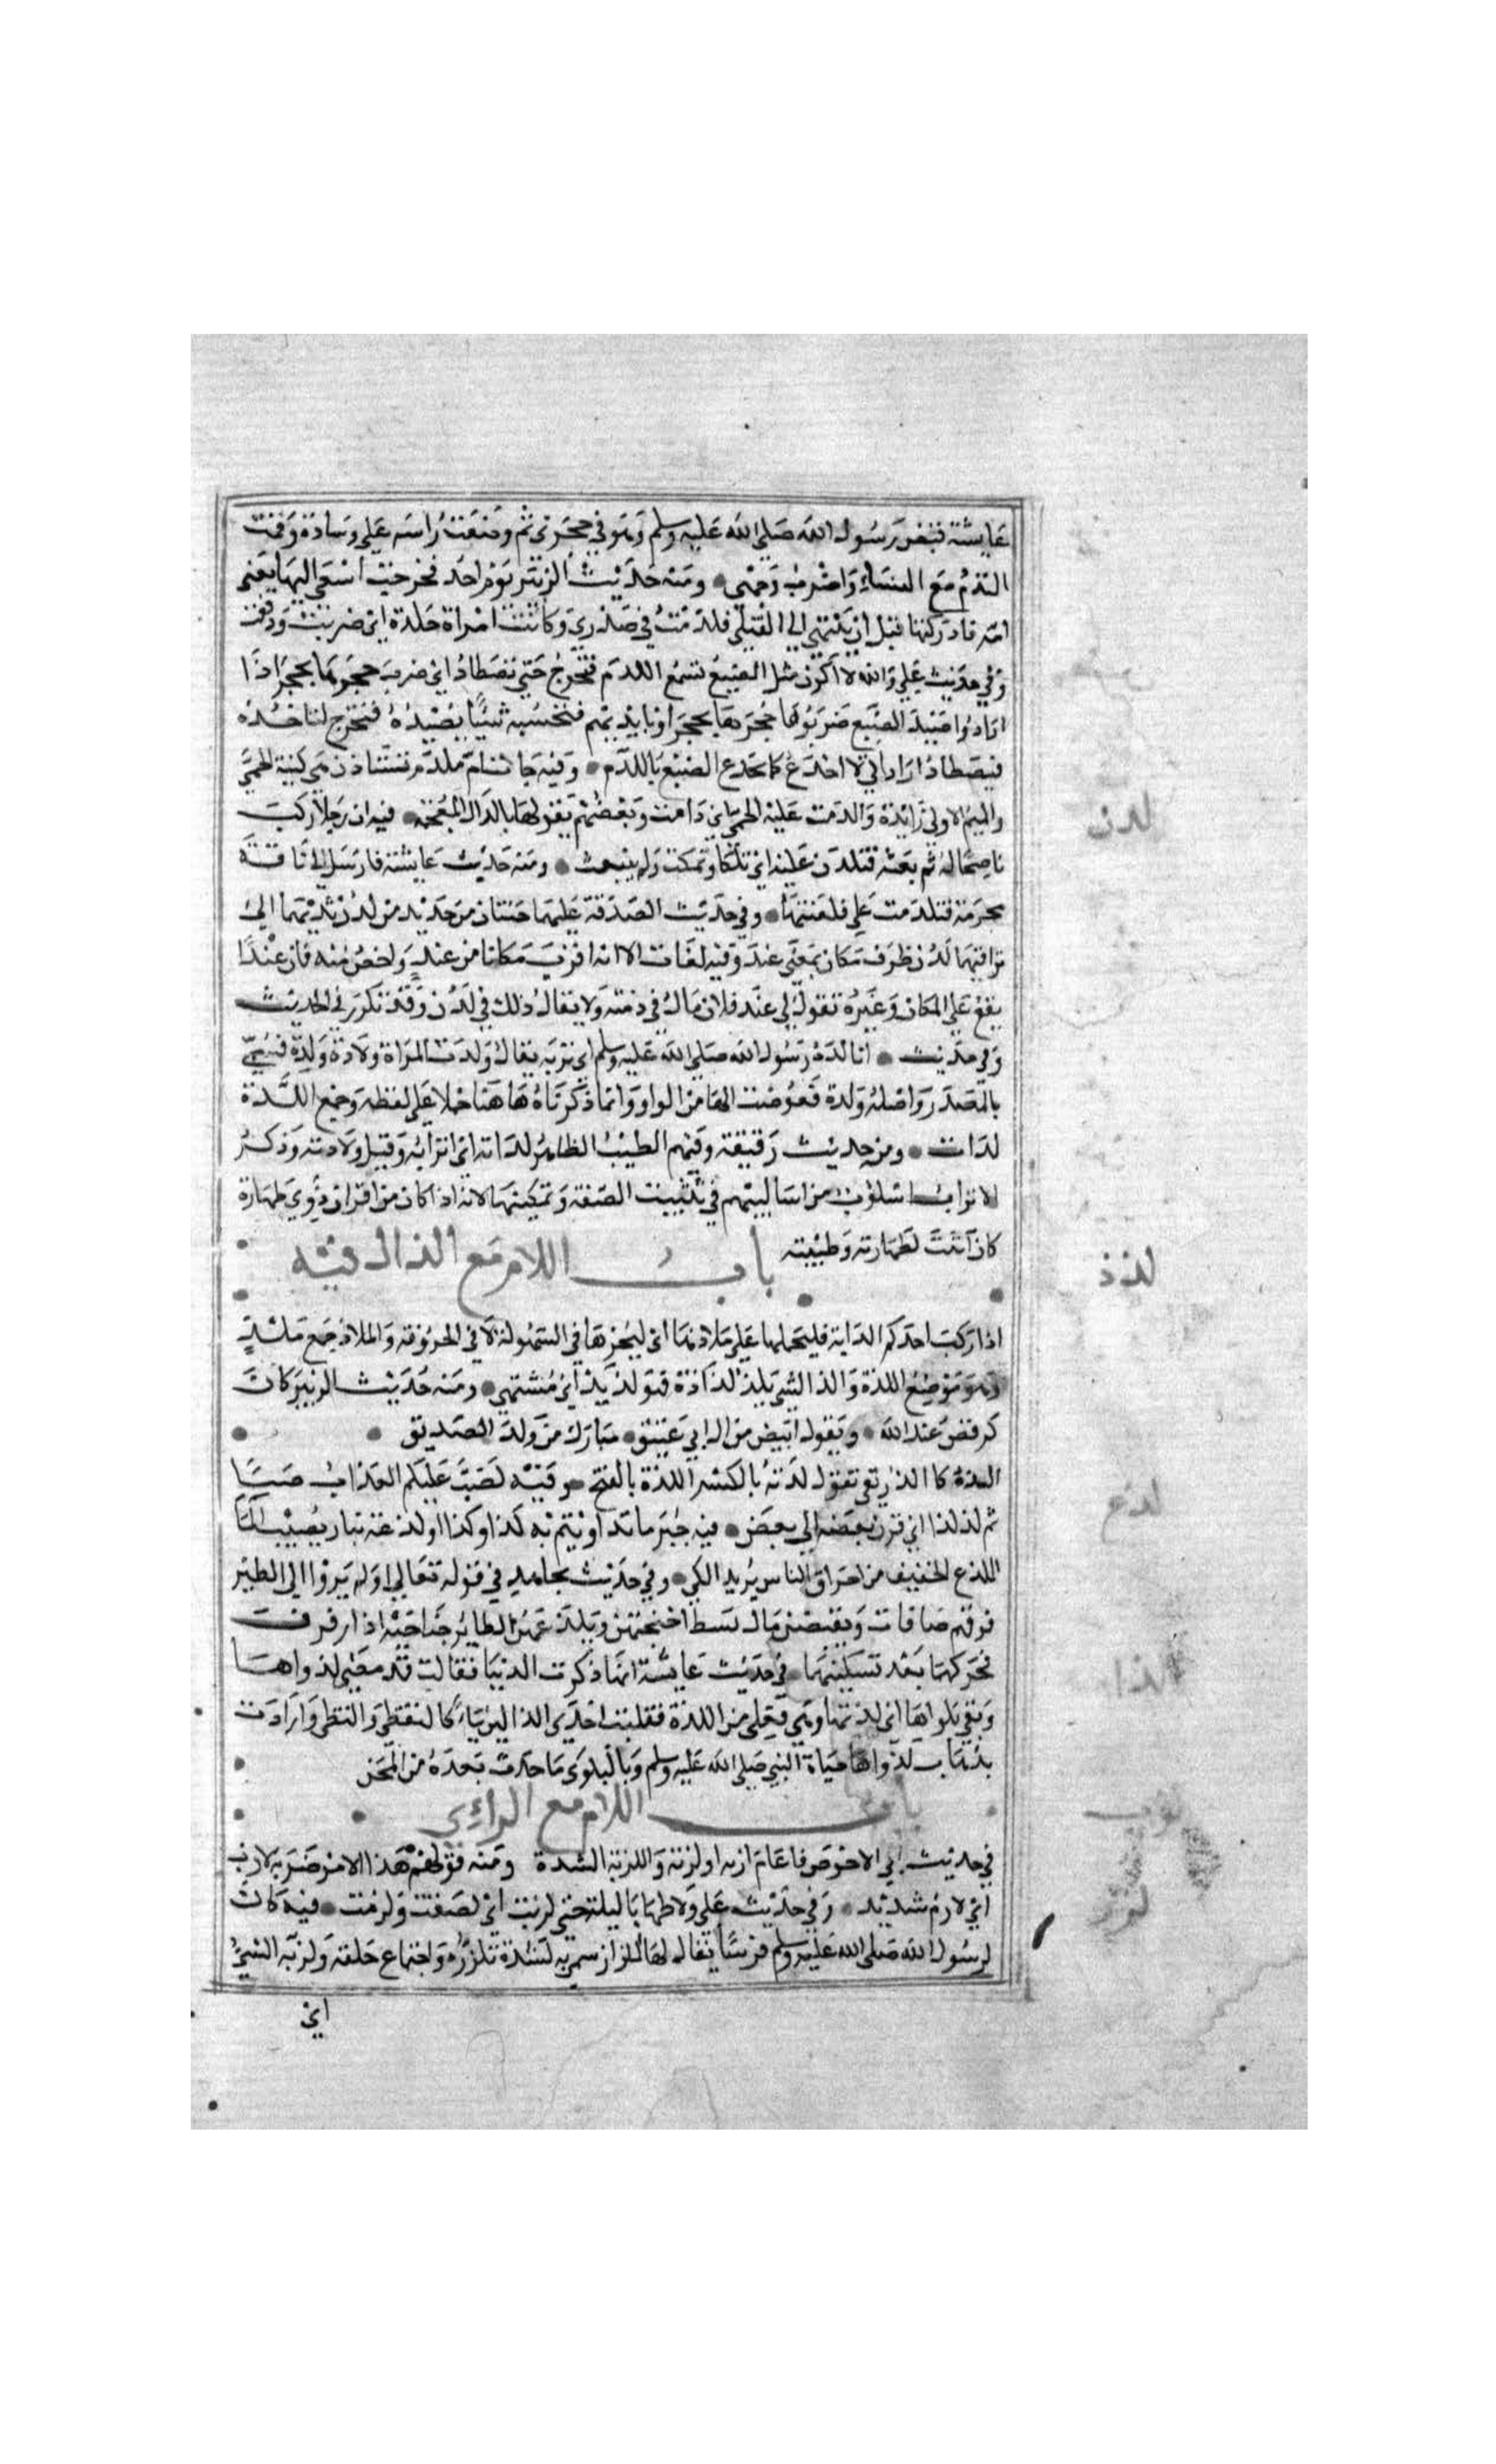 عايشة قبض رسول الله صلى الله عليه وسلم وهو في حجري ثم وضعت راسه على وسادة وقمت
التدم مع النساء واضرب وجهي ومنه حديث الزبير يوم احد فخرجت اسعى اليها يعني
امه فادركتها قبل ان تنتهي الى القتلى فلدمت في صدري وكانت امراة جلدة اي ضربت ودفعت
وفي حديث علي والله لا اكون مثل الضبع تسمع اللدم فتخرج حتى تصطاد اي ضرب جحرها بحجر اذا
ارادوا صيد الضبع ضربوا جحرها بحجر او بايديهم فتحسبه شيئا يصيده فتخرج لتاخذه
فيصطاد اراد اني لا اخدع كما تخدع الضبع باللدم وفيه جات ام ملدم تستاذن هي كنية الحمى
والميم الاولى زائدة والدمت عليه الحمى اي دامت وبعضهم يقولها بالذال المعجمة فيه ان رجلا ركب
لدن
ناضحا له ثم بعثه فتلدن عليه اي تلكا وتمكث ولم ينبعث ومنه حديث عايشة فارسل الي ناقة
محرمة فتلدمت علي فلعنتها وفي حديث الصدقة عليهما جنتان من حديد من لدن ثديهما الى
تراقيهما لدن ظرف مكان بمعنى عند وفيه لغات الا انه اقرب مكانا من عند واخص منه فان عندا
يقع على المكان وغيره تقول لي عند فلان مال في ذمته ولا يقال ذلك في لدن وقد تكرر في الحديث
وفي حديث انا لدة رسول الله صلى الله عليه وسلم اي تربه يقال ولدت المراة ولادة ولدة فسمي
بالمصدر واصله ولدة فعوضت الها من الواو وانما ذكرناه هاهنا حملا على لفظه وجمع اللدة
لدات ومن حديث رقيقة وفيهم الطيب الطاهر لداته اي اترابه وقيل ولادته وذكر
الاتراب اسلوب من اساليبهم في تثبيت الصفة وتمكينها لانه اذا كان من اقران ذوي طهارة
كان اثبت لطهارته وطيبته
باب اللام مع الذال فيه
لذذ
اذا ركب احدكم الدابة فليحملها على ملاذها اي ليجرها في السهولة لا في الحزونة والملاذ جمع ملذ
وهو موضع اللذة ولذ الشي يلذ لذاذة فهو لذيذ اي مشتهى ومنه حديث الزبير كان
يرقص عند الله ويقول ابيض من ال ابي عتيق مبارك من ولد الصديق
الذه كما الذ ريقي تقول لذته بالكسر الذه بالفتح وفيه لصب عليكم العذاب صبا
لذع
ثم لذ لذا اي قرن بعضه الى بعض فيه خير ما تداويتم به كذا وكذا او لذعة بنار يصيب الما
اللذع الخفيف من احراق الناس يريد الكي وفي حديث مجاهد في قوله تعالى اولم يروا الى الطير
فوقهم صافات ويقبضن قال بسط اجنحتهن ويلذعهن الطائر جناحيه اذا رفرف
لذا
فحركهما بعد تسكينهما في حديث عايشة انها ذكرت الدنيا فقالت قد مضى لذواها
وبقي بلواها اي لذتها وهي فعلى من اللذة فقلبت احدى الذالين ياء كالتقضي والتظني وارادت
بذهاب لذواها حياة النبي صلى الله عليه وسلم وبالبلوى ما حدث بعده من المحن
باب اللام مع الزاي
لزب
في حديث ابي الاحوص في عام ازبة او لزبة واللزبة الشدة ومنه قولهم هذا الامر ضربة لازب
اي لازم شديد وفي حديث علي ولاطها بالبلة حتى لزبت اي لصقت ولزمت فيه كان
لزز
لرسول الله صلى الله عليه وسلم فرسا يقال لها اللزاز سمي به لشدة تلززه واجتماع خلقه ولز به الشي
اي